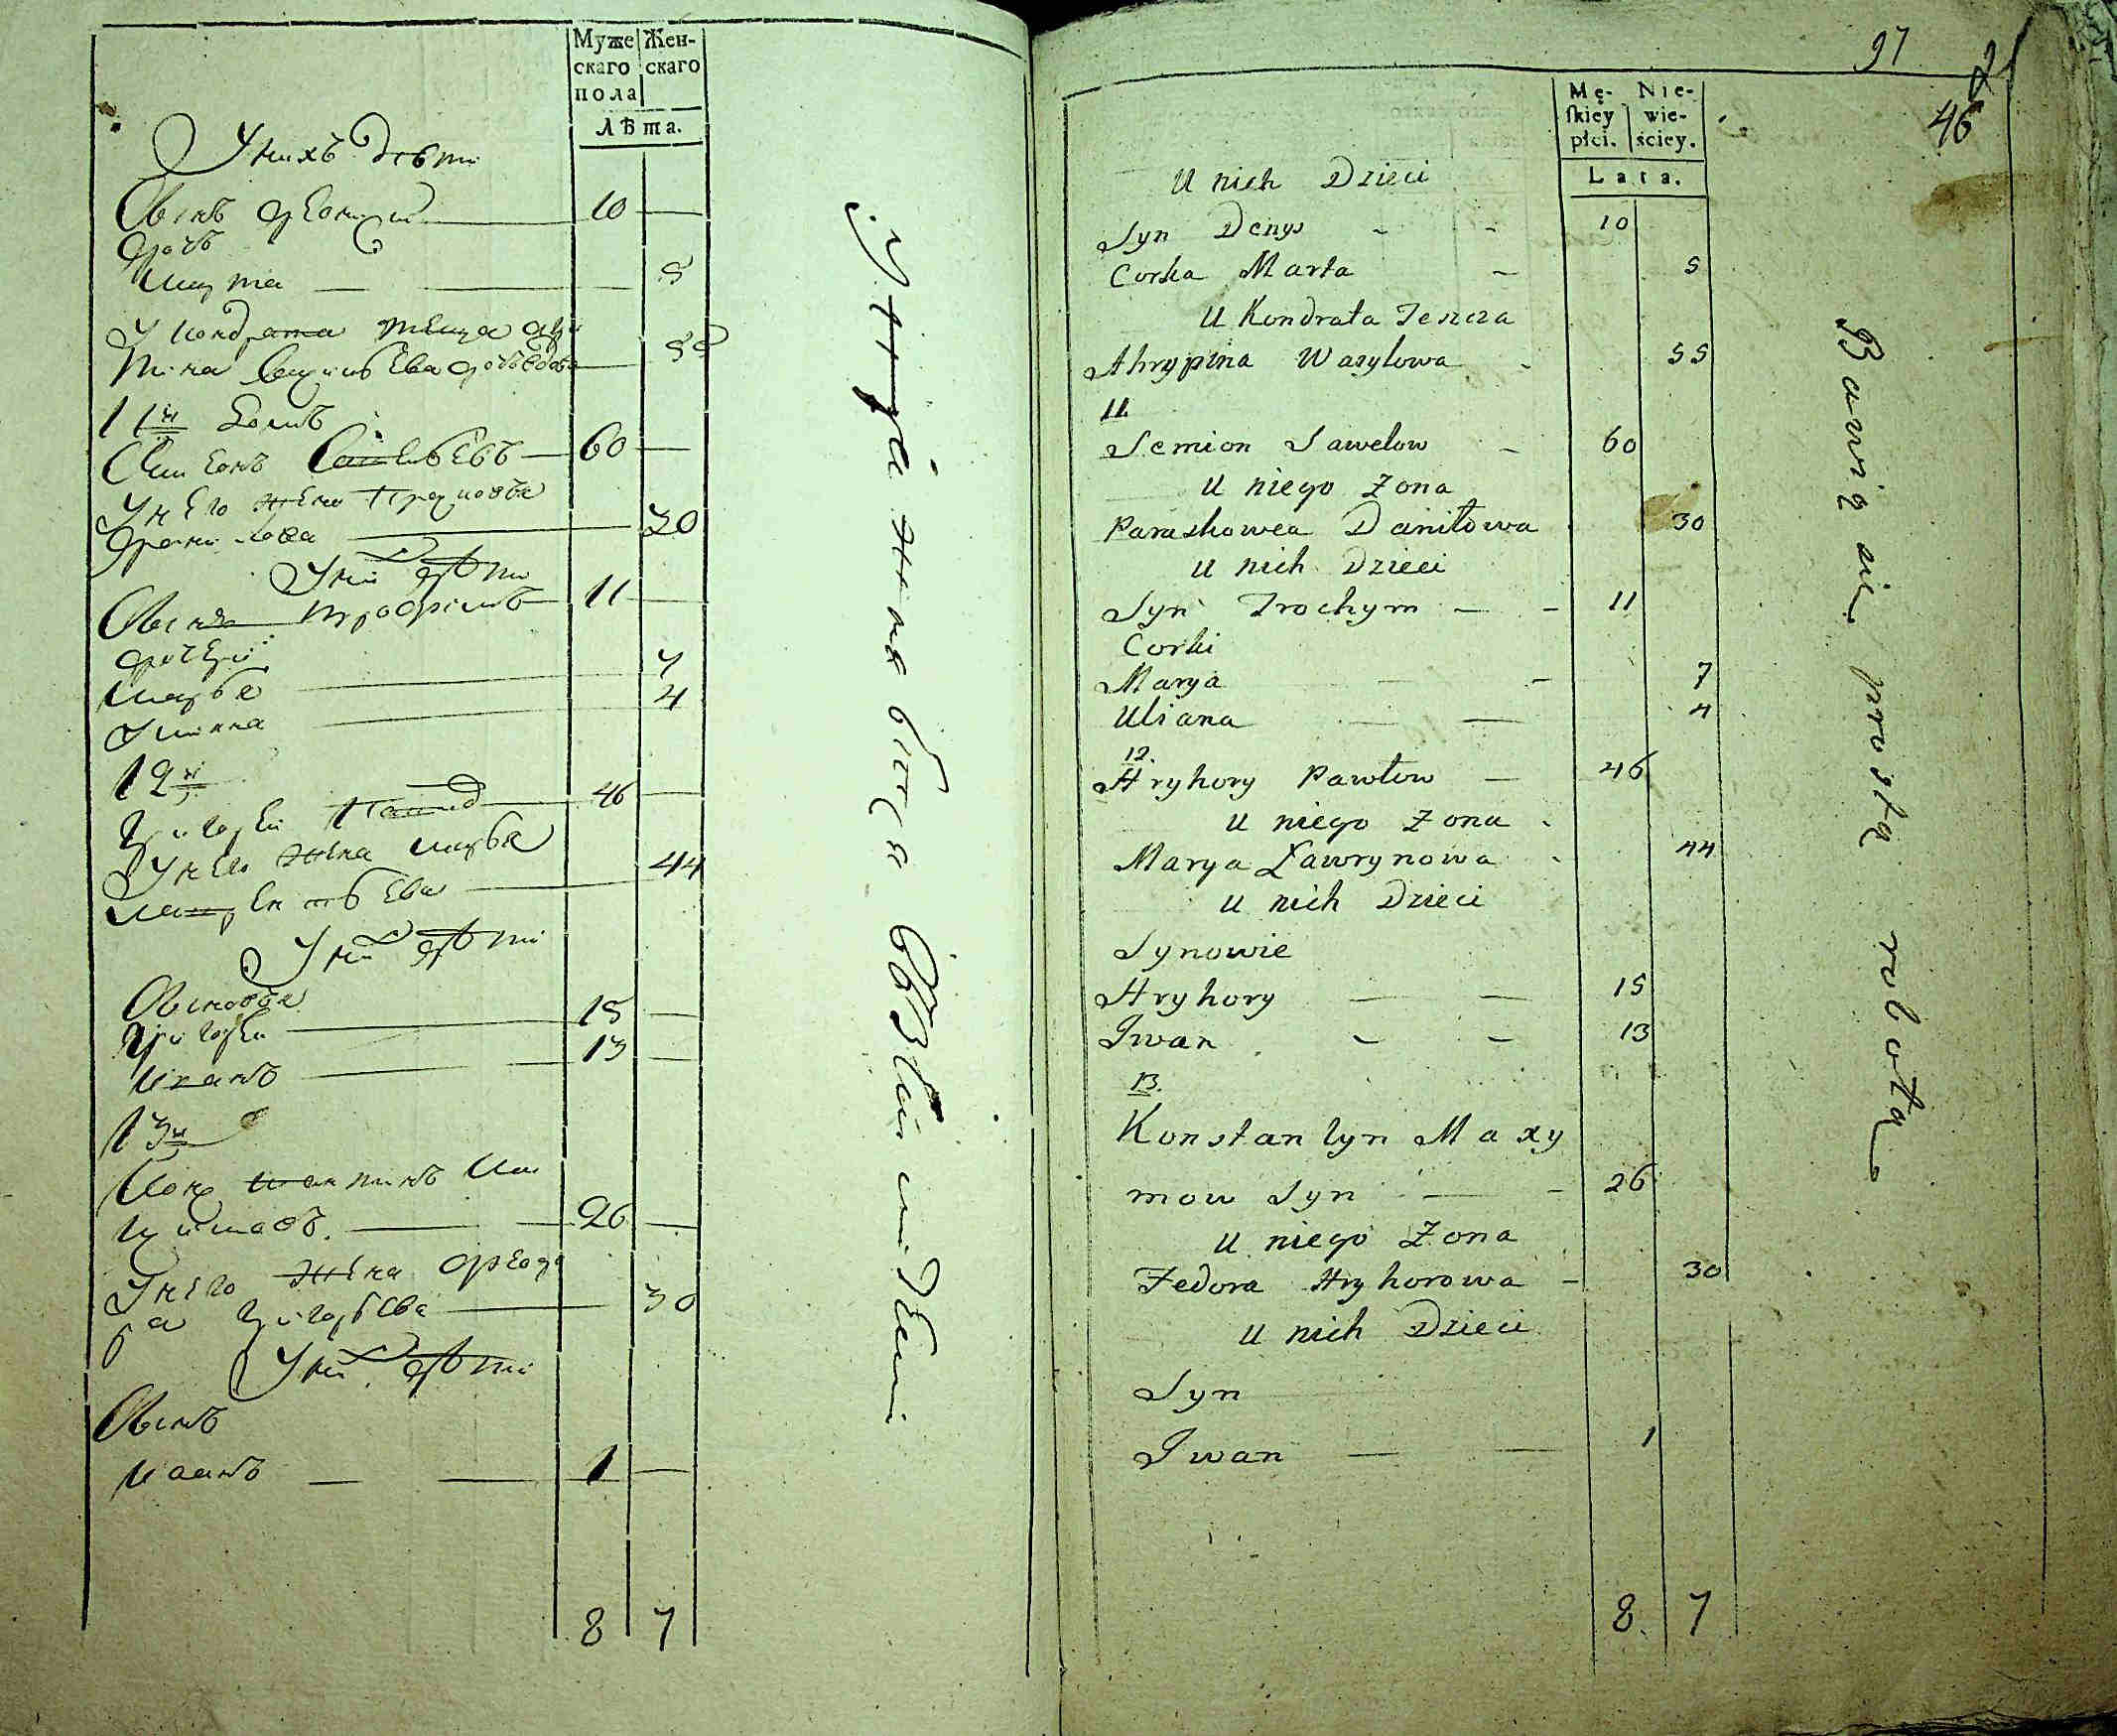 Муже
скаго
пола
Жен-
скаго
Лѣта.
У нихъ дѣти
Сынъ Денисей 10
Дочь
Марта 5
У Кондрата теща Агри
пина Васильева дочь вдова 55
11й домъ
Симеонъ Савельевъ 60
У него жена Прасковья
Данилова 30
У ни дѣти
Сынъ Трофимъ 11
Дочери
Марья 7
Ульяна 4
12й
Григорей Павлов 46
У него жена Марья
Лаврентьева 44
У ни дѣти
Сыновья
Григорей 15
Иванъ 13
13й
Констянтинъ Ма
ксимовъ 26
У него жена Федора
Григорьева 30
У ни дѣти
Сынъ
Иванъ 1
8 7
97
46
Mę-
skiey
płci.
Nie-
wie-
ściey.
Lata.
U nich Dzieci
Syn Denys 10
Corka Marta 5
U Kondrata Teszcza
Ahrypina Wasylowa 55
11.
Semion Sawelow 60
U niego Zona
Paraskowea Daniłowa 30
U nich Dzieci
Syn Trochym 11
Corki
Marya 7
Uliana 4
12.
Hryhory Pawłow 46
U niego Zona
Marya Ławrynowa 44
U nich Dzieci
Synowie
Hryhory 15
Iwan 13
13.
Konstantyn Maxy
mow Syn 26
U niego Zona
Fedora Hryhorowa 30
U nich Dzieci
Syn
Iwan 1
8 7
Bawią się prostą robotą